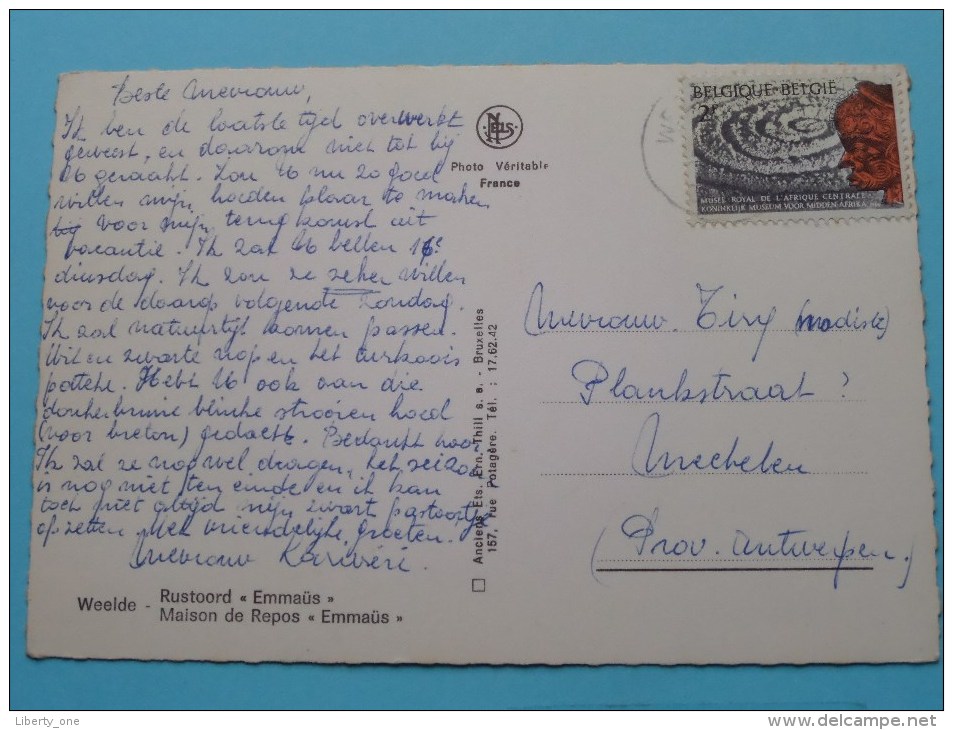 Beste Mevrouw,
Ik ben de laatste tijd overwerkt
geweest, en daarom niet tot bij
U geraakt. Zou U nu zo goed
willen mijn hoeden klaar te maken
bij voor mijn terugkomst uit
vacantie. Ik zal U bellen 16e
dinsdag. Ik zou ze zeker willen
voor de daarop volgende Zondag.
Ik zal natuurlijk komen passen.
Wit en zwarte nop en het turkoois
Hebt U ook aan die
donkerbruine blinke strooien hoed
(voor breton) gedacht. Bedankt hoor
Ik zal ze nog wel dragen, het seizoen
is nog niet ten einde en ik kan
toch niet altijd mijn zwart
opzetten. Met vriendelijke groeten.
Mevrouw
Weelde - Rustoord « Emmaüs »
Maison de Repos « Emmaüs »
NELS
Photo Véritable
France
Anciens Ets. Ern. Thill s. a. - Bruxelles
157, rue Potagère. Tél. : 17.62.42
BELGIQUE-BELGIË
2F
MUSEE ROYAL DE L'AFRIQUE CENTRALE
KONINKLIJK MUSEUM VOOR MIDDEN AFRIKA
Mevrouw Tiry (modiste)
Plankstraat ?
Mechelen
(Prov. Antwerpen.)
Liberty_one
www.delcampe.net